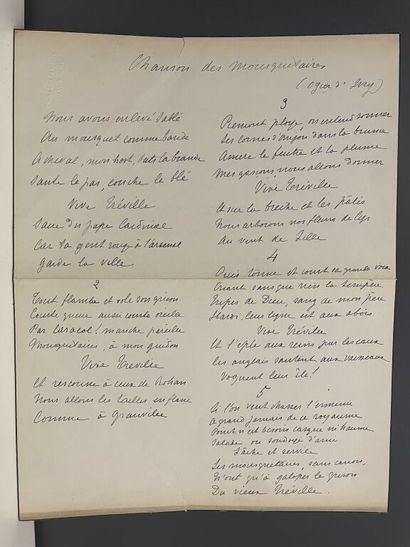 Chanson des Mousquetaires
(Ogier d'Ivry)
Nous avons enlevé Sablé
Au mousquet comme
A cheval, mon host, sats la
Saute le pas, couche le blé
Vive Tréville
Sauve du pape Cardinal
Car la gent rouge à l'arsenal
Garde la ville
2
Tout flambe et vole son grison
Courte queue aussi courte oreille
Par Caracol! marche pareille
Mousquetaires, à mon guidon
Vive Tréville
Et rescousse à ceux de Rohan
Nous allons les tailler en flanc
Comme à Granville
3
Piémont ploye, on entend sonner
Les cornes d'Anjou dans la brume
Amour le feutre et la plume
Mes garçons, nous allons donner
Vive Tréville
Et sur la brèche et les pâtis
Nous arborons nos fleurs de lys
Au vent de Lille
4
Ouïs tonne et court sa grande voix
Criant sans que rien la tempère
Tripes de Dieu, sang de mon père
Hardi, leur ligne est aux abois
Vive Tréville
Et l'épée aux reins par les eaux
les anglais sautant aux vaisseaux
Voguent leur île!
5
Si l'on veut chasser l'ennemi
A grand jamais de ce royaume
Point n'est besoin casque ni haume
Salade ou d'arme
Lâche et servile
Les mousquetaires, sans canon,
N'ont qu'à galoper le grison
Du vieux Tréville.